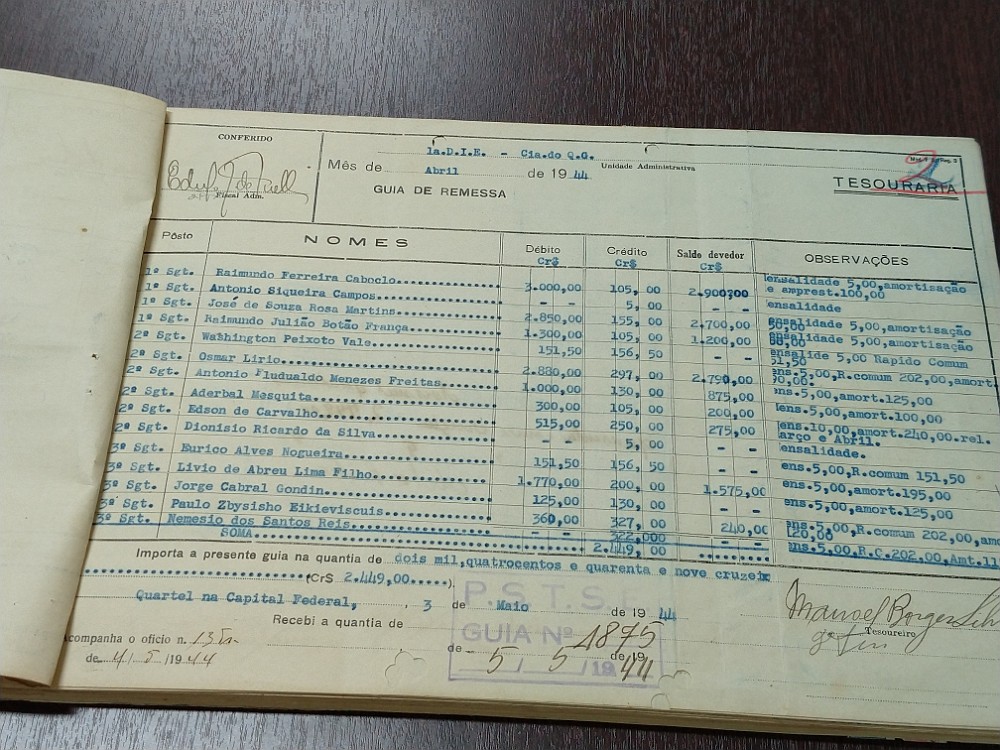 CONFERIDO
Fiscal Adm.
1a.D.I.E. - Cia.do Q.G.
Unidade Administrativa
Mês de Abril de 1944
GUIA DE REMESSA
TESOURARIA
Pôsto NOMES Débito Cr$ Crédito Cr$ Saldo devedor Cr$ OBSERVAÇÕES
1º Sgt. Raimundo Ferreira Caboclo 3.000,00 105,00 2.900,00 ensalidade 5,00,amortisação e emprest.100,00
1º Sgt. Antonio Siqueira Campos - - 5,00 - - ensalidade
1º Sgt. José de Souza Rosa Martins 2.850,00 155,00 2.700,00 ensalidade 5,00,amortisação
1º Sgt. Raimundo Julião Botão França 1.300,00 105,00 1.200,00 ensalidade 5,00,amortisação
2º Sgt. Washington Peixoto Vale 151,50 156,50 - - ensalide 5,00 Rapido Comum 51,50
2º Sgt. Osmar Lirio 2.880,00 297,00 2.790,00 ens.5,00,R.comum 202,00,amort. 90,00.
2º Sgt. Antonio Fludualdo Menezes Freitas 1.000,00 130,00 875,00 ens.5,00,amort.125,00
2º Sgt. Aderbal Mesquita 300,00 105,00 200,00 ens.5,00,amort.100,00
2º Sgt. Edson de Carvalho 515,00 250,00 275,00 ens.10,00,amort.240,00.rel. arço e Abril.
2º Sgt. Dionisio Ricardo da Silva - - 5,00 - - ensalidade.
3º Sgt. Eurico Alves Nogueira 151,50 156,50 - - ens.5,00,R.comum 151,50
3º Sgt. Livio de Abreu Lima Filho 1.770,00 200,00 1.575,00 ens.5,00,amort.195,00
3º Sgt. Jorge Cabral Gondin 125,00 130,00 - - ens.5,00,amort.125,00
3º Sgt. Paulo Zbysisho Eikieviscuis 360,00 327,00 240,00 ens.5,00,R.comum 202,00,amo 120,00
3º Sgt. Nemesio dos Santos Reis - - 322,000 - - ens.5,00,R.C.202,00,Amt.11
SOMA 2.449,00
Importa a presente guia na quantia de dois mil,quatrocentos e quarenta e nove cruzeix
(Cr$ 2.449,00.....).
Quartel na Capital Federal, 3 de Maio de 1944
Recebi a quantia de
Manoel Borges
Tesoureiro
P.S.T.S.
GUIA Nº 1875
de 5 / 5 / de 1944
companha o oficio n.
de 4/5/1944